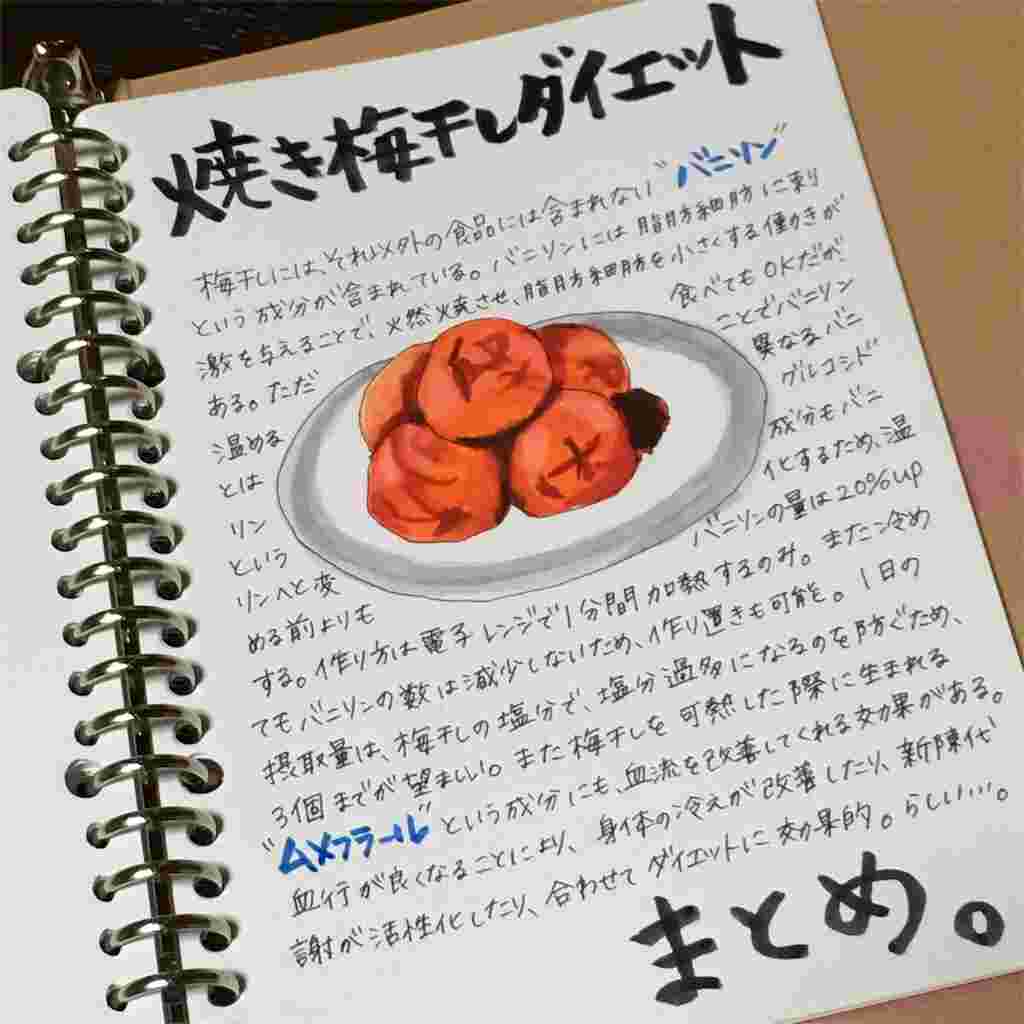 焼き梅干しダイエット
梅干しには、それ以外の食品には含まれない"バニリン"
という成分が含まれている。バニリンには脂肪細胞に刺
激を与えることで、燃焼させ、脂肪細胞を小さくする働きが
ある。ただ 食べてもOKだが、
温める ことでバニリン
とは 異なるバニ
リン グルコシド
という 成分もバニ
リンへと変 化するため、温
める前よりも バニリンの量は20%up
する。作り方は電子レンジで1分間加熱するのみ。また冷め
てもバニリンの数は減少しないため、作り置きも可能。1日の
摂取量は、梅干しの塩分で、塩分過多になるのを防ぐため、
3個までが望ましい。また梅干しを可熱した際に生まれる
"ムメフラール"という成分にも、血流を改善してくれる効果がある。
血行が良くなることにより、身体の冷えが改善したり、新陳代
謝が活性化したり、合わせてダイエットに効果的。らしい…。
まとめ。